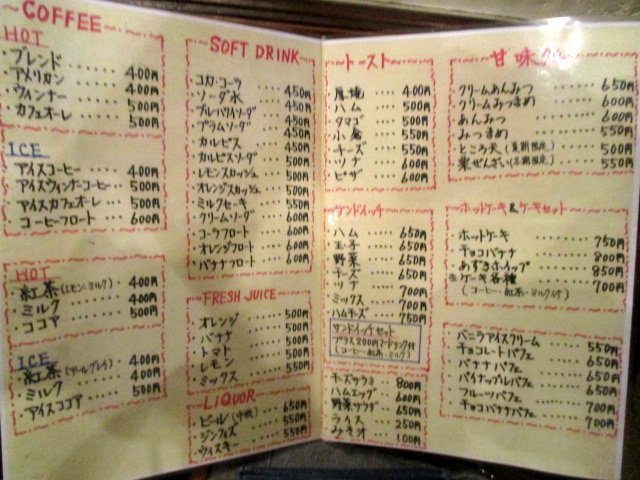 COFFEE
HOT
・ブレンド ････ 400円
・アメリカン ････ 400円
・ウィンナー ････ 500円
・カフェオーレ ････ 500円
ICE
・アイスコーヒー ････ 400円
・アイスウィンナーコーヒー ･･･ 500円
・アイスカフェオーレ ････ 500円
・コーヒーフロート ････ 600円
HOT
・紅茶(レモン・ミルク) 400円
・ミルク ････ 400円
・ココア ････ 500円
ICE
・紅茶 400円
・ミルク ････ 400円
・アイスココア ････ 500円
SOFT DRINK
・コカ・コーラ ････ 450円
・ソーダ水 ････ 450円
・ブルーハワイソーダ 450円
・プラムソーダ ････ 450円
・カルピス ････ 450円
・カルピスソーダ ････ 500円
・レモンスカッシュ ････ 550円
・オレンジスカッシュ ････ 550円
・ミルクセーキ ････ 550円
・クリームソーダ ････ 600円
・コーラフロート ････ 600円
・オレンジフロート ････ 600円
・バナナフロート ････ 600円
FRESH JUICE
・オレンジ ････ 500円
・バナナ ････ 500円
・トマト ････ 500円
・レモン ････ 550円
・ミックス ････ 550円
LIQUOR
・ビール(小瓶) ････ 650円
・ジンフィズ ････ 550円
・ウイスキー ････ 550円
トースト
・厚焼 ････ 400円
・ハム ････ 500円
・タマゴ ････ 500円
・小倉 ････ 550円
・チーズ ････ 550円
・ツナ ････ 600円
・ピザ ････ 600円
サンドイッチ
・ハム ････ 650円
・玉子 ････ 650円
・野菜 ････ 650円
・チーズ ････ 650円
・ツナ ････ 700円
・ミックス ････ 700円
・ハムチーズ ････ 750円
サンドイッチセット
プラス200円でドリンク付
(コーヒー・紅茶・ミルク)
・チーズサラミ ････ 800円
・ハムエッグ ････ 600円
・野菜サラダ ････ 650円
・ライス ････ 250円
・みそ汁 ････ 100円
甘味
クリームあんみつ ････ 650円
クリームみつまめ ････ 600円
あんみつ ････ 600円
みつまめ ････ 550円
ところ天(夏期限定) 500円
栗ぜんざい(冬期限定) 550円
ホットケーキ&ケーキセット
・ホットケーキ ････ 750円
・チョコバナナ ････ 800円
・あずきホイップ ････ 850円
※ケーキ各種 ････ 700円
(コーヒー・紅茶・ミルク付)
・バニラアイスクリーム ････ 550円
・チョコレートパフェ ････ 650円
・バナナパフェ ････ 650円
・パイナップルパフェ ････ 650円
・フルーツパフェ ････ 700円
・チョコバナナパフェ ････ 700円